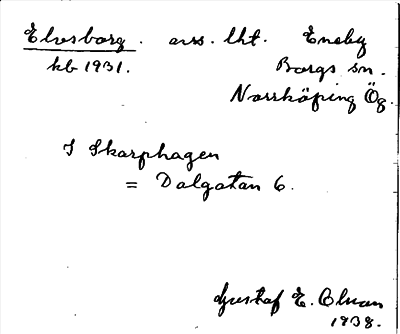 Elvsborg. avs. lht. Eneby
kb 1931. Borgs sn.
Norrköping Ög.
I Skarphagen
= Dalgatan 6.
Gustaf E. Olsson
1938.